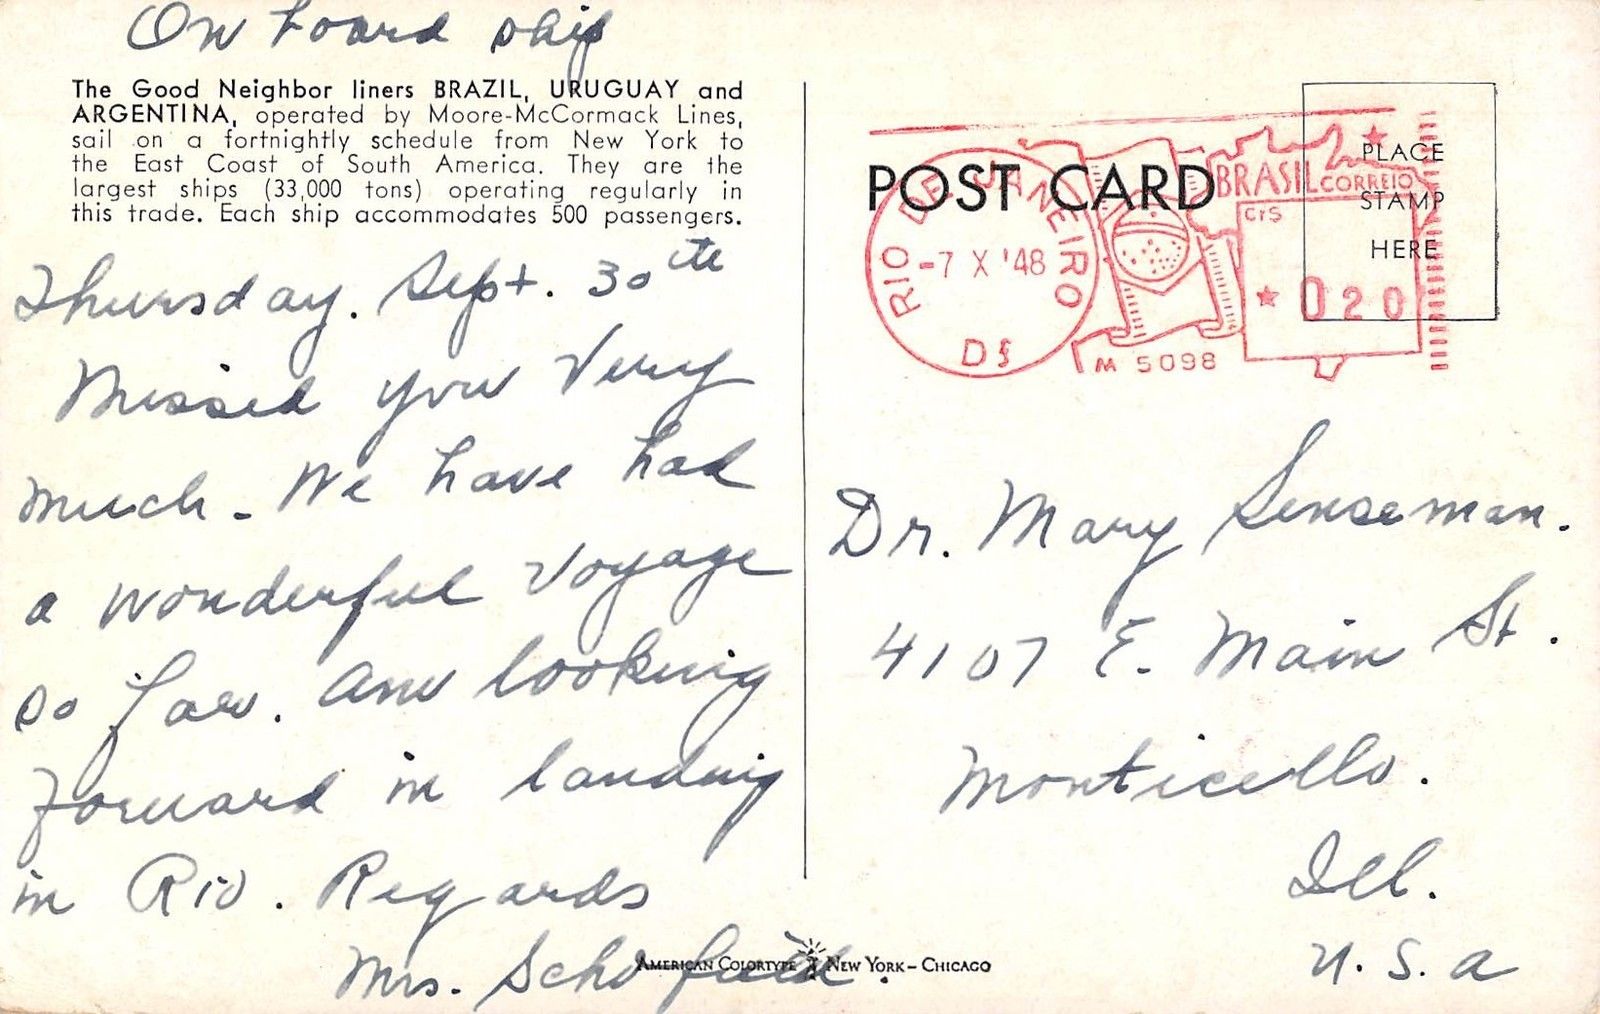 On board ship
The Good Neighbor liners BRAZIL, URUGUAY and
ARGENTINA, operated by Moore-McCormack Lines,
sail on a fortnightly schedule from New York to
the East Coast of South America. They are the
largest ships (33,000 tons) operating regularly in
this trade. Each ship accommodates 500 passengers.
Thursday. Sept. 30th
Missed you very
much - We have had
a wonderful voyage
so far. Am looking
forward in landing
in Rio. Regards
Mrs. Schofield.
AMERICAN COLORTYPE NEW YORK - CHICAGO
POST CARD
PLACE
STAMP
HERE
RIO DE JANEIRO
-7 X '48
D
M 5098
BRASIL CORREIO
CrS
020
Dr. Mary Senseman.
4107 E. Main St.
Monticello.
Ill.
U.S.A